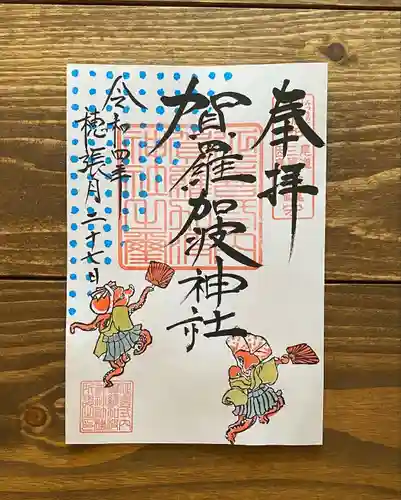 奉拝
賀羅加波神社
令和四年
穂張月二十七日